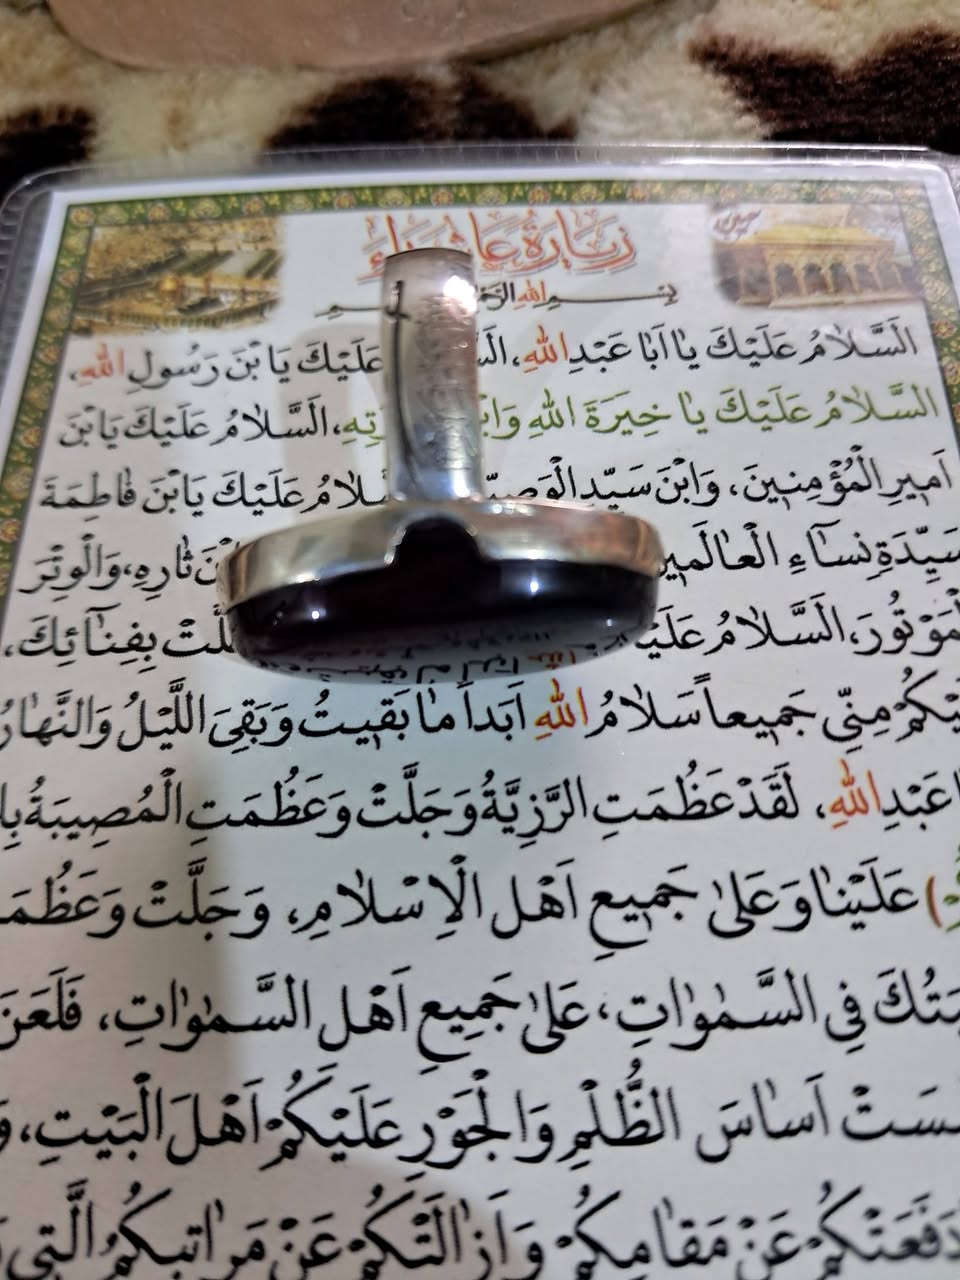 زیارة عاشوراء
حسین
بسم الله
اَلسَّلامُ عَلَيْكَ يا اَبا عَبْدِاللهِ، عَلَيْكَ يَابْنَ رَسُولِ اللهِ،
السَّلامُ عَلَيْكَ يا خِيَرَةَ اللهِ وَابْنَ، اَلسَّلامُ عَلَيْكَ يَابْنَ
اَميرِالْمُؤْمِنينَ، وَابْنَ سَيِّدِ عَلَيْكَ يَابْنَ فاطِمَةَ
سَيِّدَةِ نِساءِ الْعالَمينَ ثارِهِ، وَالْوِتْرَ
الْمَوْتُورَ، اَلسَّلامُ بِفِنائِكَ،
مِنّي جَميعاً سَلامُ اللهِ اَبَداً ما بَقيتُ وَبَقِيَ اللَّيْلُ وَالنَّهارُ
عَبْدِاللهِ، لَقَدْ عَظُمَتِ الرَّزِيَّةُ وَجَلَّتْ وَعَظُمَتِ الْمُصيبَةُ
عَلَيْنا وَعَلىٰ جَميعِ اَهْلِ الْاِسْلامِ، وَجَلَّتْ
فِي السَّمٰواتِ، عَلىٰ جَميعِ اَهْلِ السَّمٰواتِ، فَلَعَنَ
اَساسَ الظُّلْمِ وَالْجَوْرِ عَلَيْكُمْ اَهْلَ الْبَيْتِ،
عَنْ مَقامِكُمْ وَاَزالَتْكُمْ عَنْ مَراتِبِكُمُ الَّتي